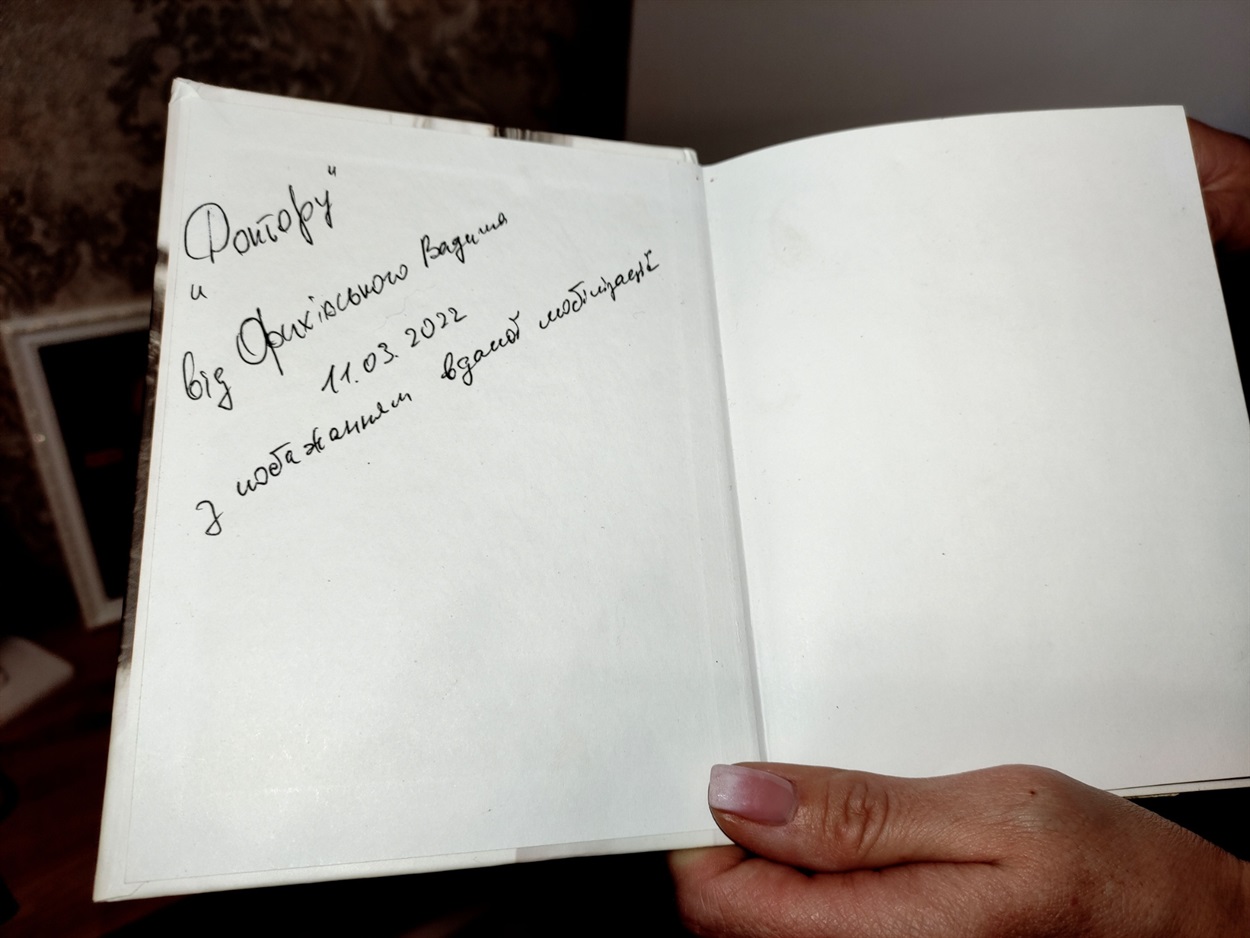 „Доктору"
від Орихівського Вадима
11.03.2022
З побажанням вдалої мобілізації